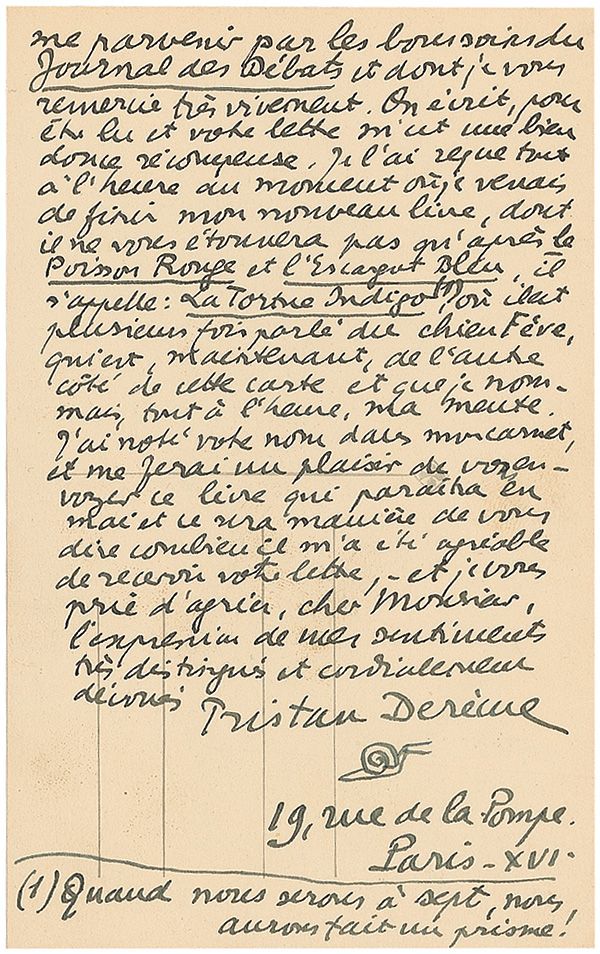 me parvenir par les bons soins du
Journal des Débats et dont je vous
remercie très vivement. On écrit, pour
être lu et votre lettre m'est une bien
douce récompense. Je l'ai reçue tout
à l'heure au moment où je venais
de finir mon nouveau livre, dont
il ne vous étonnera pas qu'après le
Poisson Rouge et l'Escargot Bleu, il
s'appelle : La Tortue Indigo (1), où il est
plusieurs fois parlé du chien Fève,
qui est, maintenant, de l'autre
côté de cette carte et que je nom-
mais, tout à l'heure, ma meute.
J'ai noté votre nom dans mon carnet,
et me ferai un plaisir de vous en-
voyer ce livre qui paraîtra en
mai et ce sera manière de vous
dire combien il m'a été agréable
de recevoir votre lettre, - et je vous
prie d'agréer, cher Monsieur,
l'expression de mes sentiments
très distingués et cordialement
dévoués
Tristan Derème
19, rue de la Pompe.
Paris - XVI.
(1) Quand nous serons à sept, nous
aurons fait un prisme !